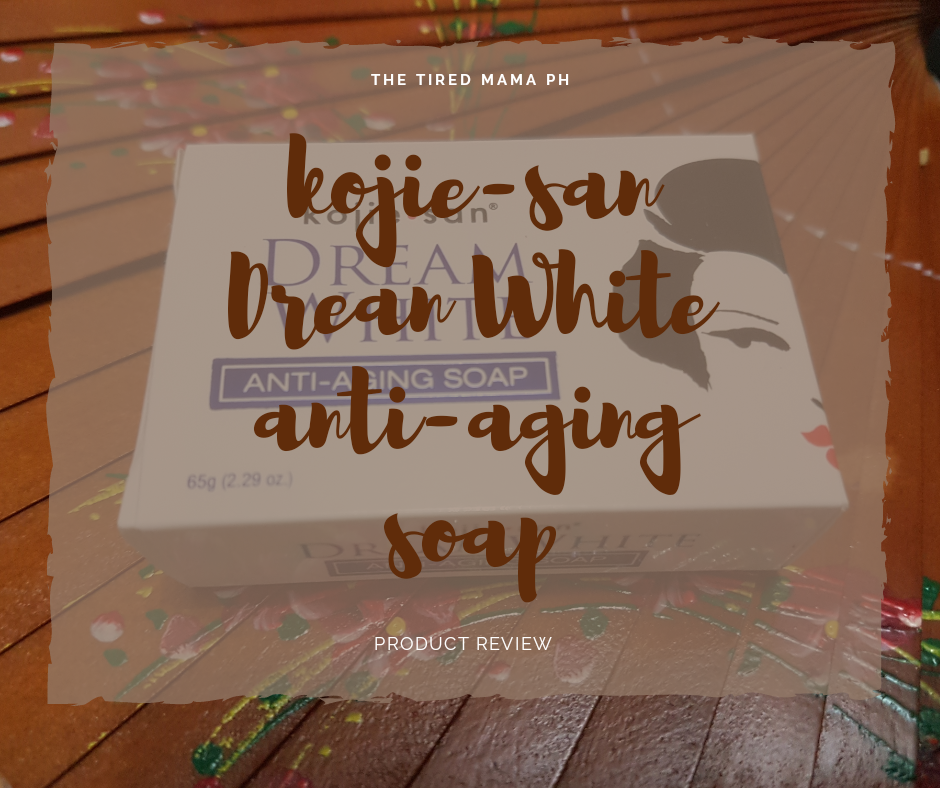 THE TIRED MAMA PH
kojie-san
Drean White
anti-aging
soap
kojie san®
DREAM
WHITE
ANTI-AGING SOAP
65g (2.29 oz.)
DREAM WHITE
ANTI-AGING SOAP
PRODUCT REVIEW